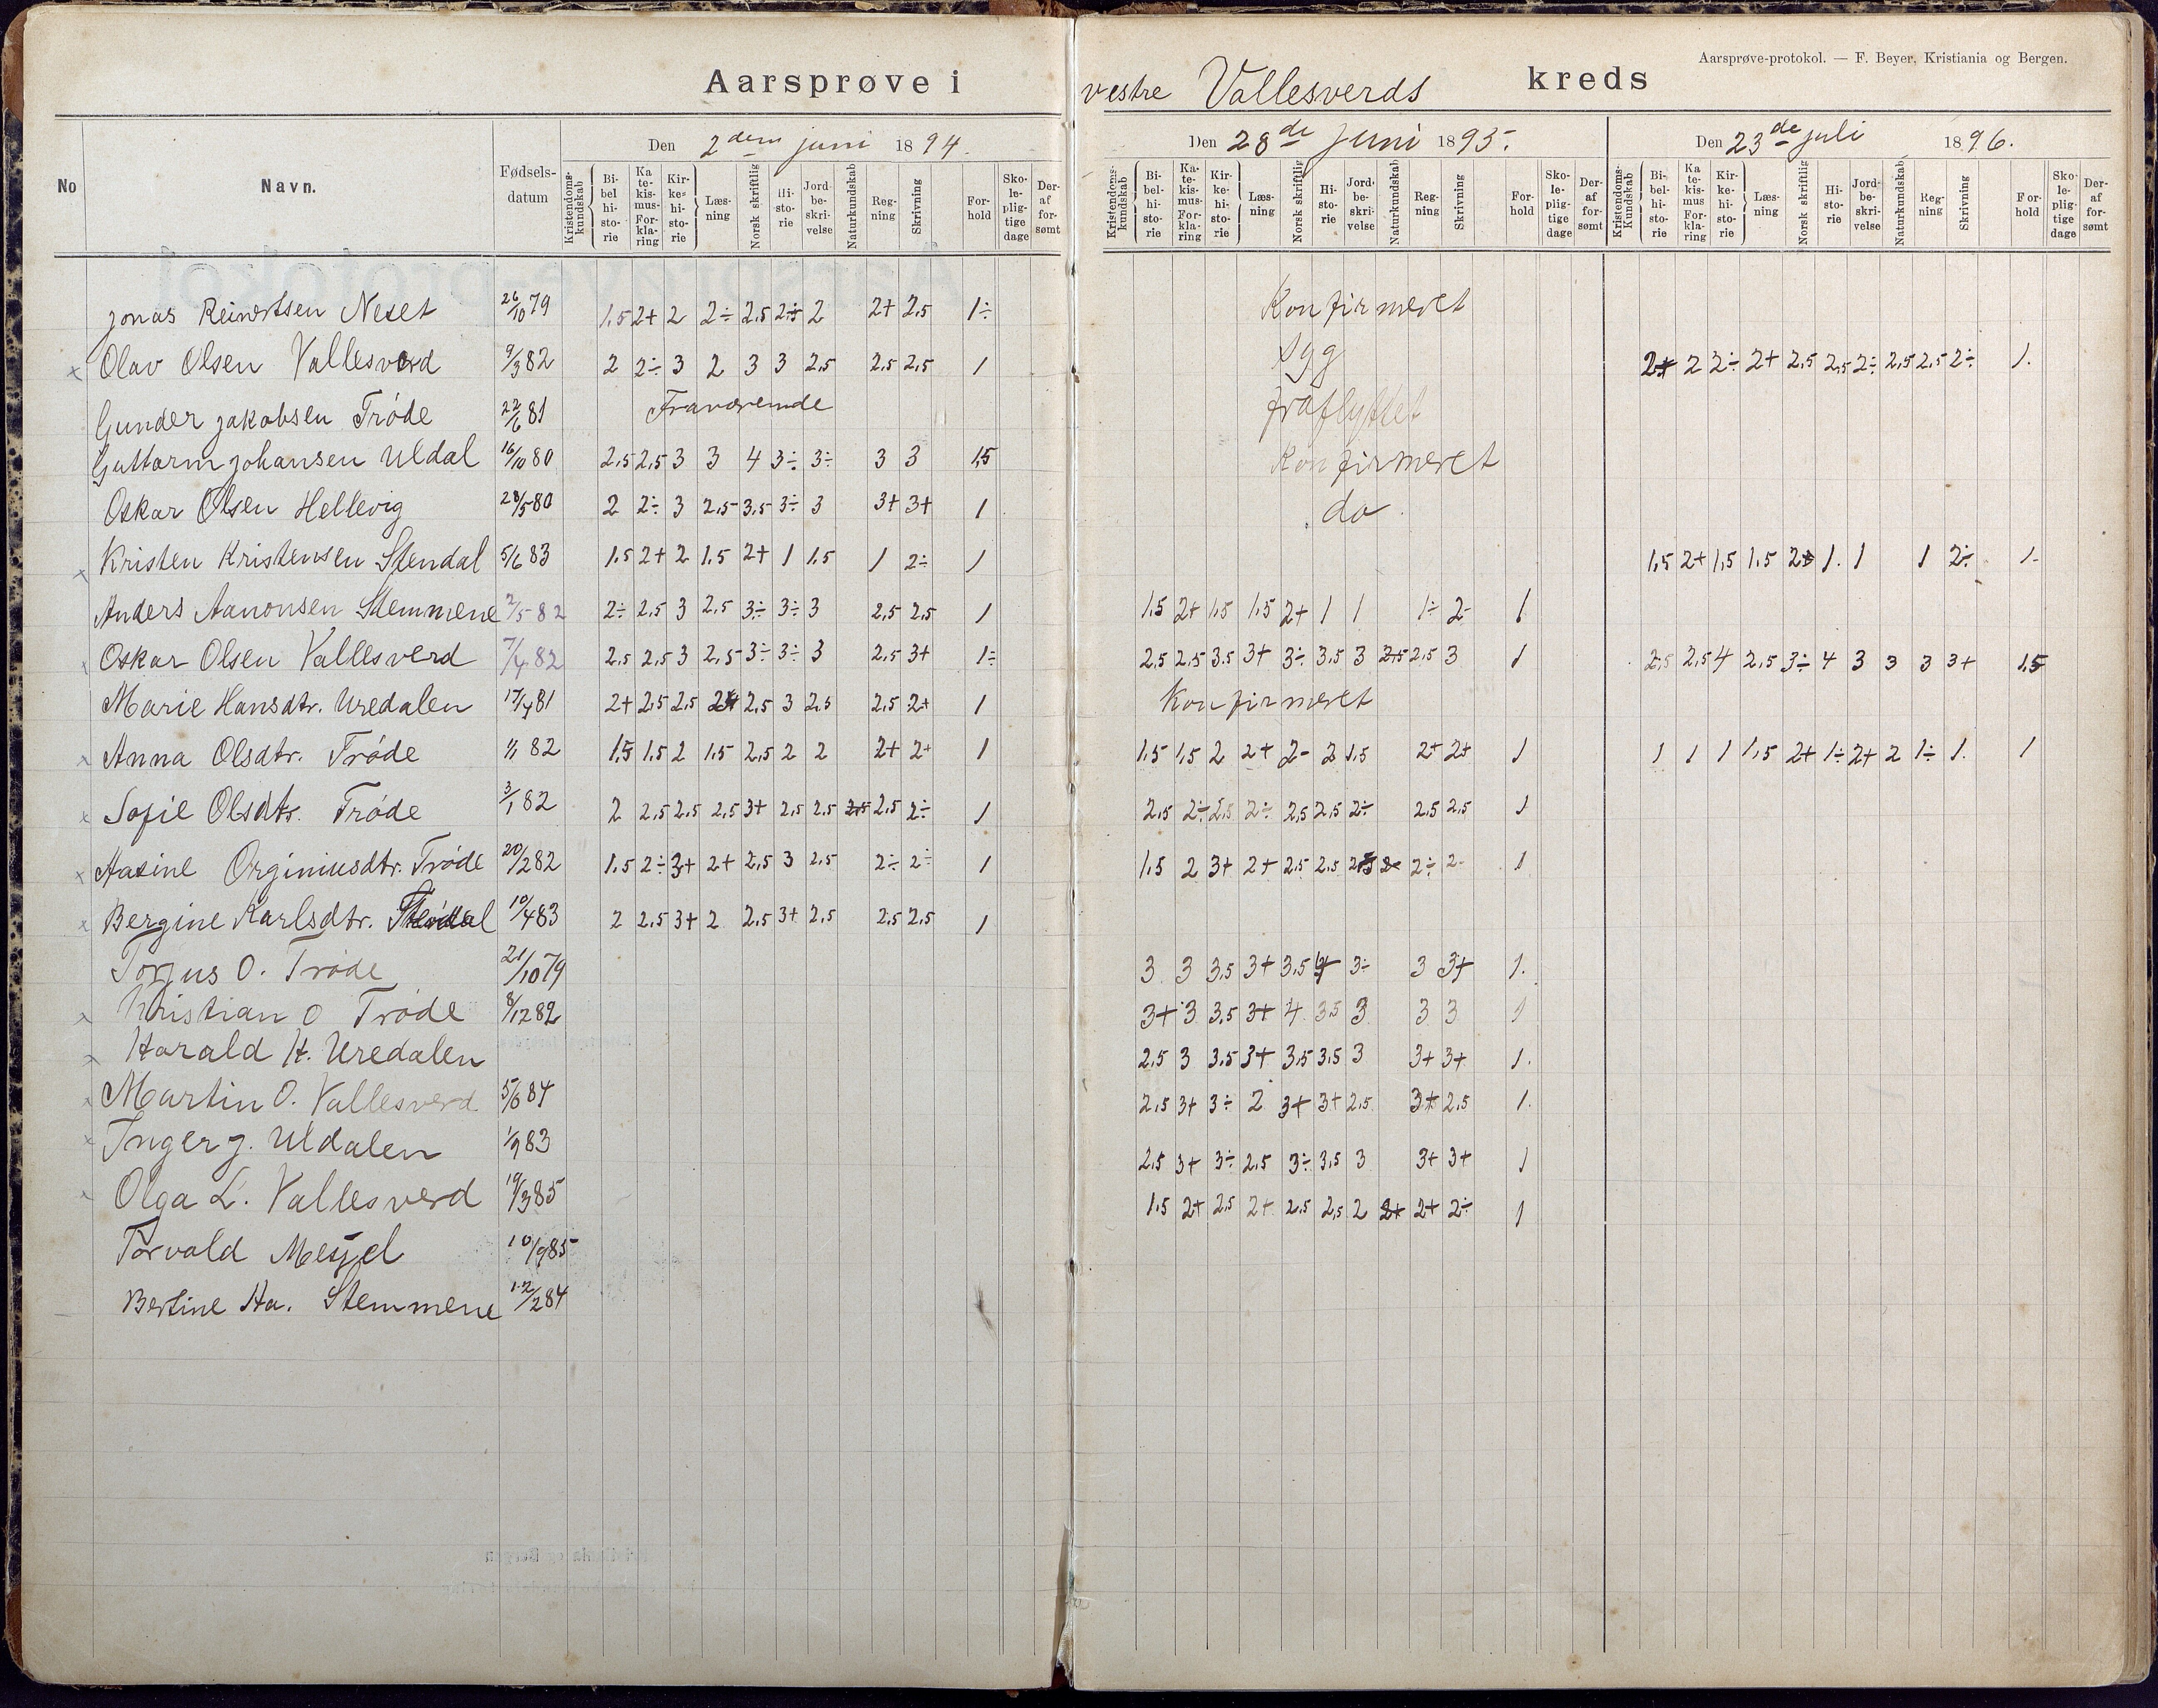 Aarsprøve-protokol. — F. Beyer, Kristiania og Bergen.
Aarsprøve i vestre Vallesverds kreds
Den 2den juni 1894. Den 28de juni 1895. Den 23de juli 1896.
No Navn. Fødsels-datum Kristendoms-kundskab Bi-bel hi-sto-rie Ka te-kis-mus-For-kla-ring Kir-ke-hi-sto-rie Læs-ning Norsk skriftlig Hi-sto-rie Jord-be-skri-velse Naturkundskab Reg-ning Skrivning For-hold Sko-le-plig-tige dage Der-af for-sømt Kristendoms-kundskab Bi-bel-hi-sto-rie Ka-te-kis-mus-For-kla-ring Kir-ke-hi-sto-rie Læs-ning Norsk skriftlig Hi-sto-rie Jord-be-skri-velse Naturkundskab Reg-ning Skrivning For-hold Sko-le-plig-tige dage Der-af for-sømt Kristendoms-Kundskab Bi-bel-hi-sto-rie Ka te-kis-mus For-kla-ring Kir-ke-hi-sto-rie Læs-ning Norsk skriftlig Hi-sto-rie Jord-be-skri-velse Naturkundskab Reg-ning Skrivning For-hold Sko-le-plig-tige dage Der-af for-sømt
Jonas Reinertsen Neset 26/10 79 1,5 2+ 2 2÷ 2,5 2÷ 2 2+ 2,5 1÷ Konfirmeret
x Olav Olsen Vallesverd 9/3 82 2 2÷ 3 2 3 3 2,5 2,5 2,5 1 syg 2+ 2 2÷ 2+ 2,5 2,5 2÷ 2,5 2,5 2÷ 1.
Gunder Jakobsen Trøde 22/6 81 Fraværende fraflyttet
Guttorm Johansen Uldal 16/10 80 2,5 2,5 3 3 4 3÷ 3÷ 3 3 1,5 Konfirmeret
Oskar Olsen Hellevig 28/5 80 2 2÷ 3 2,5 3,5 3÷ 3 3+ 3+ 1 do.
x Kristen Kristensen Stendal 5/6 83 1,5 2+ 2 1,5 2+ 1 1,5 1 2÷ 1 1,5 2+ 1,5 1,5 2+ 1. 1 1 2÷ 1.
Anders Aanonsen Stemmene 2/5 82 2÷ 2,5 3 2,5 3÷ 3÷ 3 2,5 2,5 1 1,5 2+ 1,5 1,5 2+ 1 1 1÷ 2- 1
x Oskar Olsen Vallesverd 7/4 82 2,5 2,5 3 2,5 3÷ 3÷ 3 2,5 3+ 1÷ 2,5 2,5 3,5 3+ 3÷ 3,5 3 2,5 2,5 3 1 2,5 2,5 4 2,5 3÷ 4 3 3 3 3+ 1,5
Marie Hansdtr. Uredalen 17/4 81 2+ 2,5 2,5 2+ 2,5 3 2,5 2,5 2+ 1 Konfirmeret
x Anna Olsdtr. Trøde 1/1 82 1,5 1,5 2 1,5 2,5 2 2 2+ 2+ 1 1,5 1,5 2 2+ 2- 2 1,5 2+ 2+ 1 1 1 1 1,5 2+ 1÷ 2+ 2 1÷ 1. 1
x Sofie Olsdtr. Trøde 3/1 82 2 2,5 2,5 2,5 3+ 2,5 2,5 2,5 2,5 2÷ 1 2,5 2÷ 2,5 2÷ 2,5 2,5 2÷ 2,5 2,5 1
x Aasine Orginiusdtr. Trøde 20/2 82 1,5 2÷ 3+ 2+ 2,5 3 2,5 2÷ 2÷ 1 1,5 2 3+ 2+ 2,5 2,5 2,5 2- 2÷ 2- 1
x Bergine Karlsdtr. 10/4 83 2 2,5 3+ 2 2,5 3+ 2,5 2,5 2,5 1
Torjus O. Trøde 21/10 79 3 3 3,5 3+ 3,5 4 3÷ 3 3+ 1.
x Kristian O Trøde 8/12 82 3+ 3 3,5 3+ 4 3,5 3 3 3 1
x Harald H. Uredalen 2,5 3 3,5 3+ 3,5 3,5 3 3+ 3+ 1.
x Martin O. Vallesverd 5/6 84 2,5 3+ 3÷ 2 3+ 3+ 2,5 3+ 2,5 1.
x Inger J. Uldalen 1/9 83 2,5 3+ 3÷ 2,5 3÷ 3,5 3 3+ 3+ 1
x Olga L. Vallesverd 19/3 85 1,5 2+ 2,5 2+ 2,5 2,5 2 2+ 2+ 2÷ 1
Torvald Mesel 10/9 85
Bertine Ha. Stemmene 12/2 84